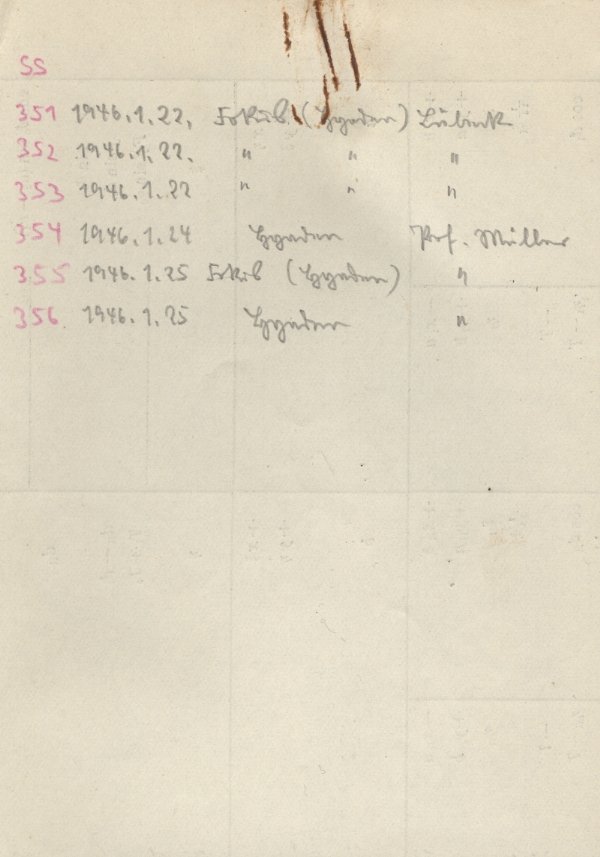 SS
351 1946.1.22. Fokus (Hyaden) Lübeck
352 1946.1.22. " " "
353 1946.1.22 " " "
354 1946.1.24 Hyaden Prof. Müller
355 1946.1.25 Fokus (Hyaden) "
356 1946.1.25 Hyaden "